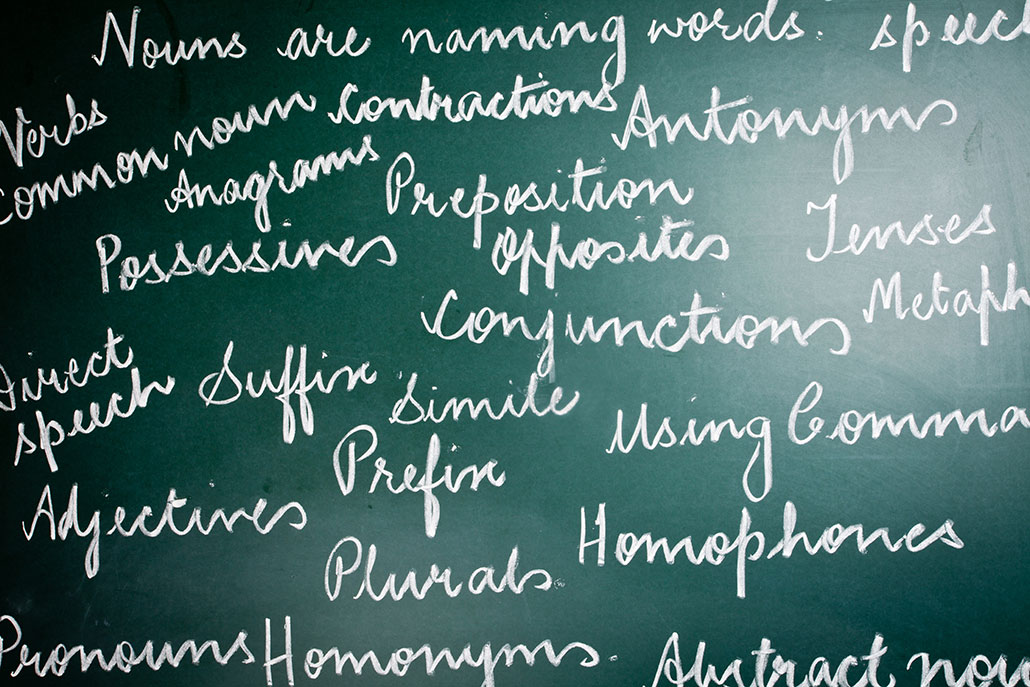 Nouns are naming words. speec
Verbs
Common noun contractions
Antonyms
Anagrams
Preposition
Possessives
opposites
Tenses
Metaph
Conjunctions
Direct
speech
Suffix
Simile
Using Comma
Prefix
Adjectives
Homophones
Plurals
Pronouns Homonyms.
Abstract nou